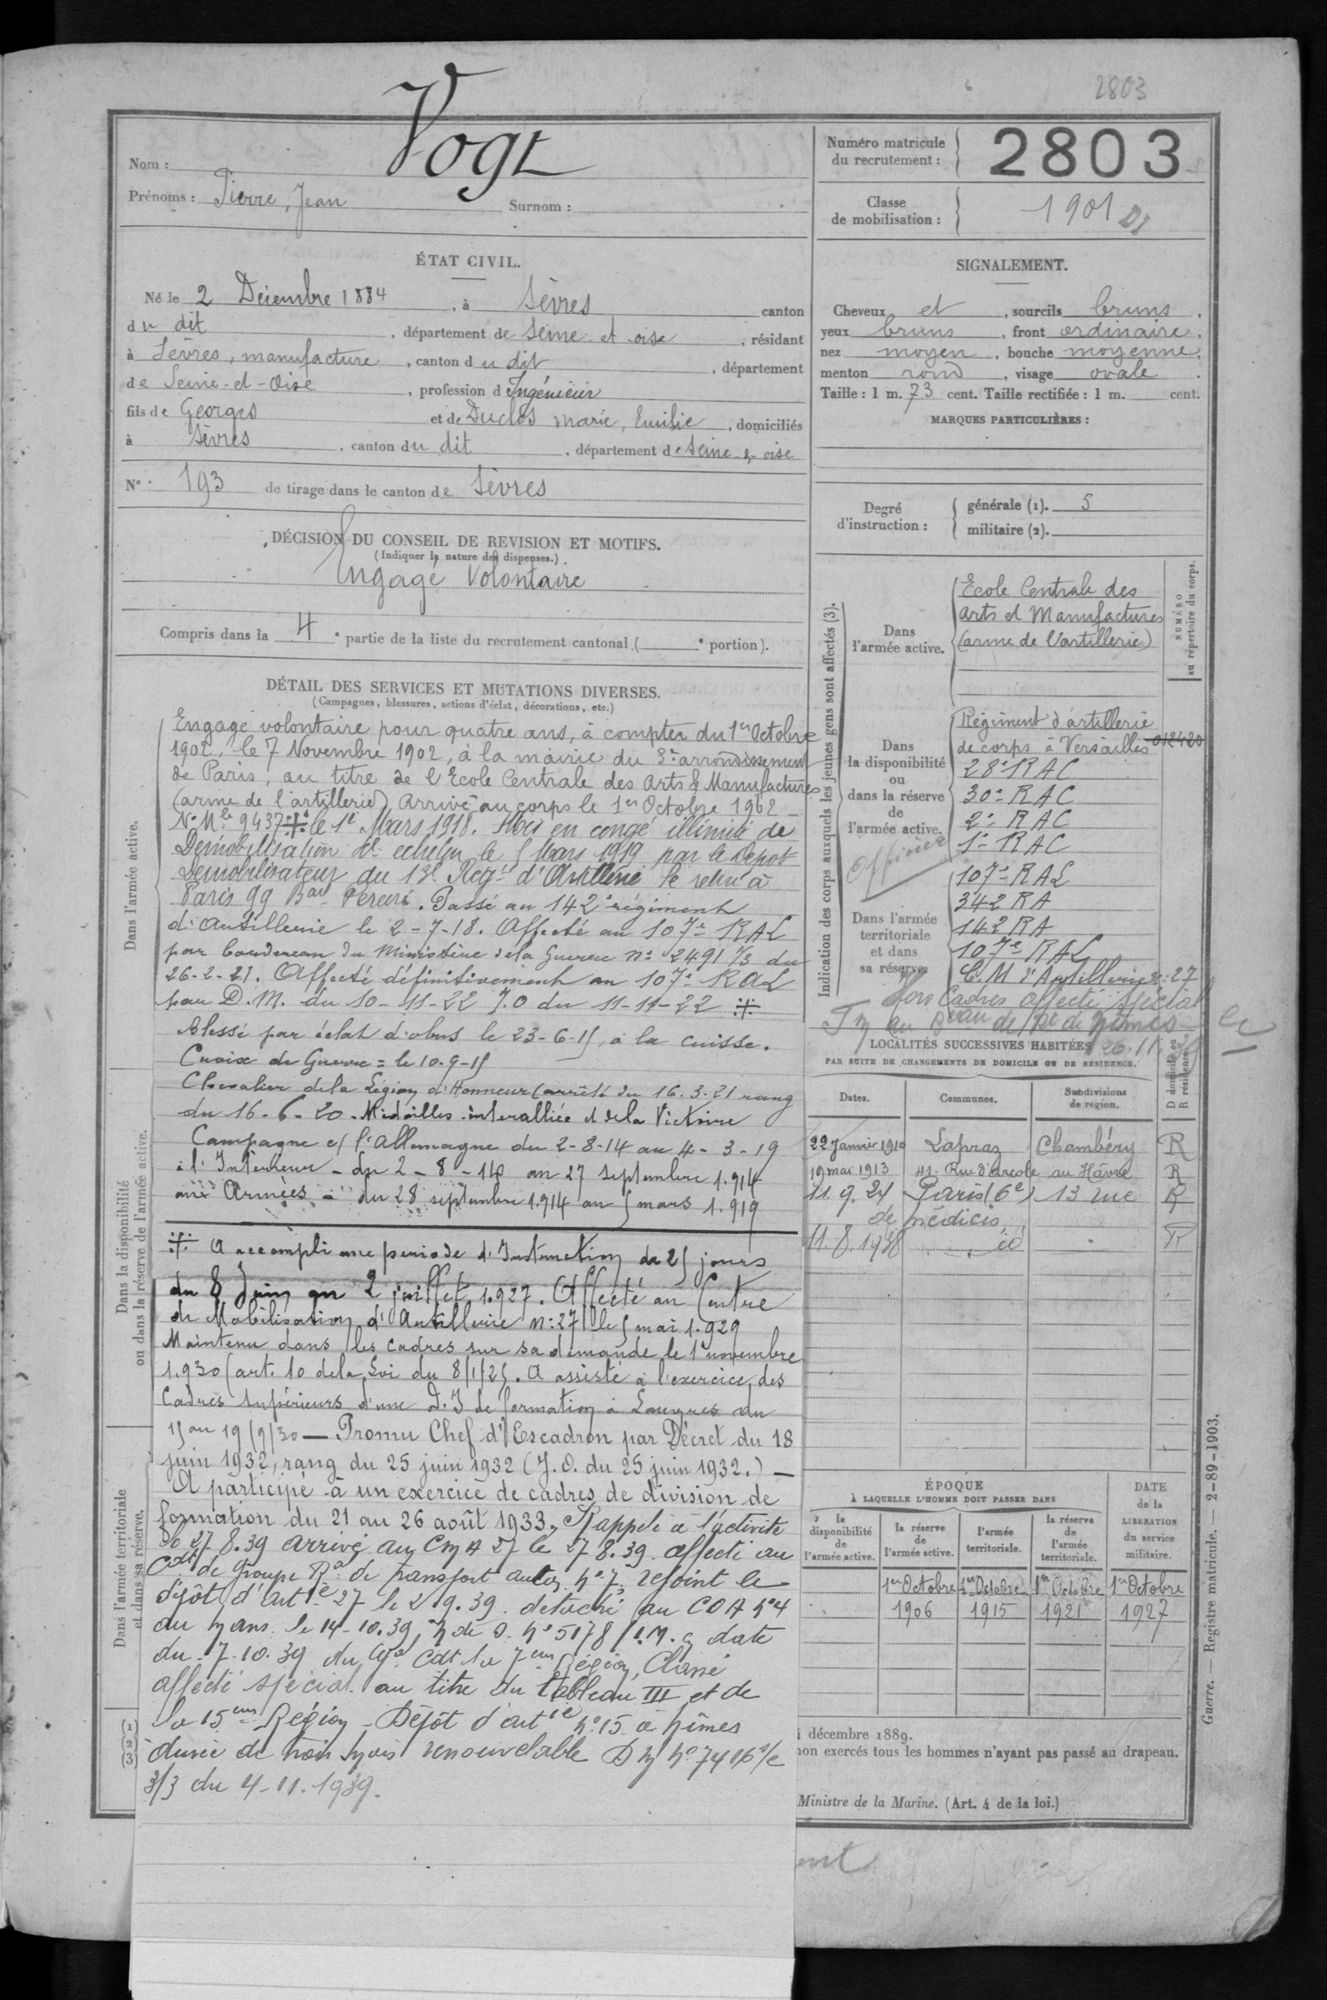 2803
Nom : Vogt
Prénoms : Pierre, Jean Surnom :
Numéro matricule du recrutement : 2803
Classe de mobilisation : 1901
ÉTAT CIVIL.
Né le 2 Décembre 1884, à Sèvres canton
du dit, département de Seine et oise, résidant
à Sèvres, manufacture, canton du dit, département
de Seine-et-Oise, profession d'Ingénieur
fils de Georges et de Duclos marie, Emilie, domiciliés
à Sèvres, canton du dit, département de Seine & oise
N° 193 de tirage dans le canton de Sèvres
SIGNALEMENT.
Cheveux et, sourcils bruns,
yeux bruns, front ordinaire,
nez moyen, bouche moyenne,
menton rond, visage ovale.
Taille : 1 m. 73 cent. Taille rectifiée : 1 m. cent.
MARQUES PARTICULIÈRES :
Degré d'instruction : générale (1). 5
militaire (2).
DÉCISION DU CONSEIL DE REVISION ET MOTIFS.
(Indiquer la nature des dispenses.)
Engagé Volontaire
Compris dans la 4e partie de la liste du recrutement cantonal ( e portion).
DÉTAIL DES SERVICES ET MUTATIONS DIVERSES.
(Campagnes, blessures, actions d'éclat, décorations, etc.)
Dans l'armée active.
Engagé volontaire pour quatre ans, à compter du 1er Octobre
1902, le 7 Novembre 1902, à la mairie du 3e arrondissement
de Paris, au titre de l'Ecole Centrale des Arts & Manufactures
(arme de l'artillerie) Arrivé au corps le 1er Octobre 1902
N° Mle 9437 le 1er Mars 1918. Mis en congé illimité de
Démobilisation échelon le 5 Mars 1919 par le Dépot
Démobilisateur du 13e Regt d'Artillerie Se retire à
Paris 99 Bard Péreire. Passé au 142e régiment
d'Artillerie le 2-7-18. Affecté au 107e RAL
par bordereau du Ministère de la Guerre n° 2491 1/3 du
26-2-21. Affecté définitivement au 107e RAL
par D.M. du 10-11-22 J.O du 11-11-22
Blessé par éclat d'obus le 23-6-15, à la cuisse.
Croix de Guerre = le 10-9-15
Dans la disponibilité ou dans la réserve de l'armée active.
Chevalier de la Légion d'Honneur (arrêté du 16.3.21 rang
du 16-6-20. Médailles interalliée et de la Victoire
Campagne c/ l'Allemagne du 2-8-14 au 4-3-19
à l'Intérieur - du 2-8-14 au 27 septembre 1.914
aux Armées - du 28 septembre 1.914 au 5 mars 1.919
A accompli une période d'Instruction de 25 jours
du 8 Juin au 2 juillet 1.927. Affecté au Centre
de Mobilisation d'Artillerie n° 27 le 5 mai 1.929
Maintenu dans les cadres sur sa demande le 1er novembre
1.930 (art. 10 de la Loi du 8/1/25. A assisté à l'exercice des
Cadres supérieurs d'une D.I de formation à Langres du
15 au 19/9/30 — Promu Chef d'Escadron par Décret du 18
juin 1932, rang du 25 juin 1932 (J.O. du 25 juin 1932.) —
Dans l'armée territoriale et dans sa réserve.
A participé à un exercice de cadres de division de
formation du 21 au 26 août 1933. Rappelé à l'activité
le 27.8.39 arrivé au CMA 27 le 27.8.39. affecté au
Cdt de groupe de transport auto n° 7, rejoint le
dépôt d'Artie 27 le 2.9.39. détaché au COA N°4
du Mans le 14-10.39, N de S. N° 5178 date
du 7.10.39 du Gal Cdt la 7eme Région, Classé
affecté spécial au titre du tableau III et de
la 15eme Région - Dépôt d'artie N° 15 à Nîmes
durée de trois mois renouvelable
3/3 du 4-11.1939.
(1) (2) (3)
Indication des corps auxquels les jeunes gens sont affectés (3).
Dans l'armée active.
Ecole Centrale des
Arts et Manufactures
(arme de l'artillerie)
NUMÉRO au répertoire du corps.
Dans la disponibilité ou dans la réserve de l'armée active.
Régiment d'artillerie
de corps à Versailles
28e RAC
30e RAC
2e RAC
1er RAC
Officier
Dans l'armée territoriale et dans sa réserve.
107e RAL
342 RA
142 RA
107e RAL
C.M d'Artillerie n: 27
Hors Cadres affecté spécial
LOCALITÉS SUCCESSIVES HABITÉES
PAR SUITE DE CHANGEMENTS DE DOMICILE OU DE RÉSIDENCE.
Dates. Communes. Subdivisions de région. D domicile ou R résidence.
22 Janvier 1910 Lapraz Chambéry R
19 mai 1913 41. Rue d'Arcole au Hâvre R
11.9.24 Paris (6e) 13 rue R
de Médicis
11.8.1938 R
ÉPOQUE
À LAQUELLE L'HOMME DOIT PASSER DANS
la disponibilité de l'armée active. la réserve de l'armée active. l'armée territoriale. la réserve de l'armée territoriale.
DATE de la LIBÉRATION du service militaire.
1er Octobre 1er Octobre 1er Octobre 1er Octobre
1906 1915 1921 1927
décembre 1889.
non exercés tous les hommes n'ayant pas passé au drapeau.
Ministre de la Marine. (Art. 4 de la loi.)
Guerre. — Registre matricule. — 2-89-1903.